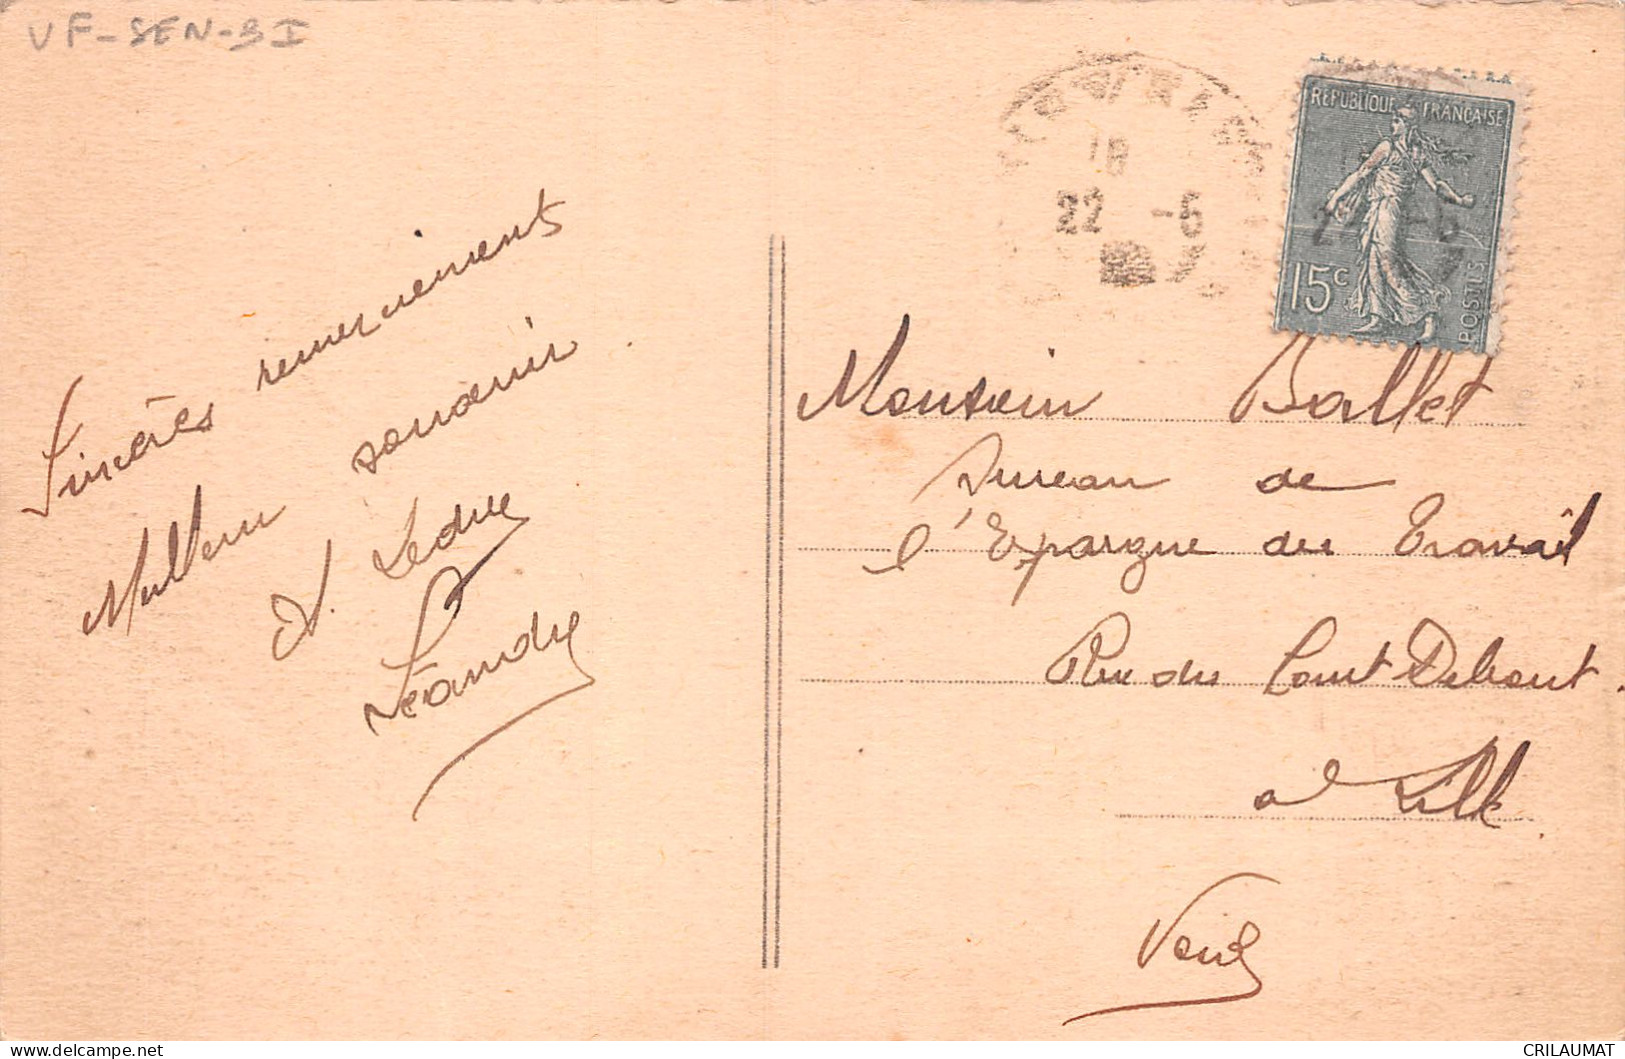 VF-SEN-3I
Sincères remerciements
Meilleur souvenir
A. Ledru
Léandre
18
22 -5
REPUBLIQUE FRANÇAISE
15c
POSTES
Monsieur Ballet
Bureau de
l'Epargne du Travail
Rue du Court Debout.
à Lille.
CRILAUMAT